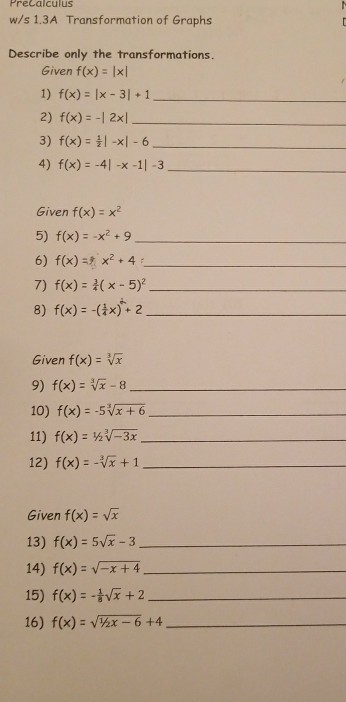 PreCalculus
w/s 1.3A Transformation of Graphs
Describe only the transformations.
Given f(x) = |x|
1) f(x) = |x - 3| + 1
2) f(x) = -| 2x|
3) f(x) = ½| -x| - 6
4) f(x) = -4| -x -1| -3
Given f(x) = x²
5) f(x) = -x² + 9
6) f(x) = x² + 4
7) f(x) = ¾( x - 5)²
8) f(x) = -(¼x)² + 2
Given f(x) = ∛x
9) f(x) = ∛x - 8
10) f(x) = -5∛(x + 6)
11) f(x) = ½∛(-3x)
12) f(x) = -∛x + 1
Given f(x) = √x
13) f(x) = 5√x - 3
14) f(x) = √(-x + 4)
15) f(x) = -⅛√x + 2
16) f(x) = √(½x - 6) +4